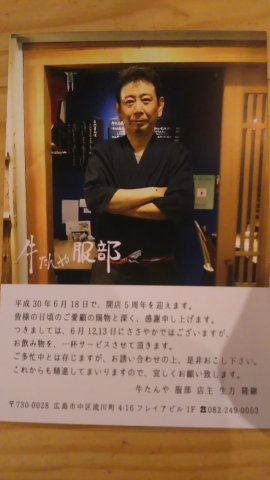 牛たんや 服部
平成30年6月18日で、開店5周年を迎えます。
皆様の日頃のご愛顧の賜物と深く、感謝申し上げます。
つきましては、6月12,13日にささやかではございますが、
お飲み物を、一杯サービスさせて頂きます。
ご多忙中とは存じますが、お誘い合わせの上、是非おこし下さい。
これからも精進してまいりますので、宜しくお願い致します。
牛たんや 服部 店主 生方 隆
〒730-0028 広島市中区流川町 4-16 フレイアビル 1F ☎082-249-0053